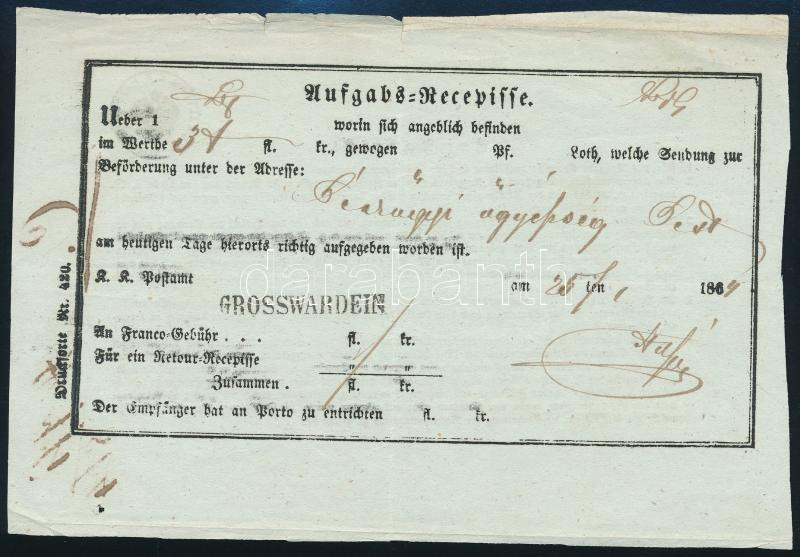 Aufgabs-Recepisse.
Ueber 1 worin sich angeblich befinden
im Werthe fl. kr., gewogen Pf. Loth, welche Sendung zur
Beförderung unter der Adresse:
Pest
am heutigen Tage hierorts richtig aufgegeben worden ist.
K. K. Postamt am 25 ten 1 1864
GROSSWARDEIN
darabanth
An Franco-Gebühr . . . fl. kr.
Für ein Retour-Recepisse " "
Zusammen . fl. kr.
Der Empfänger hat an Porto zu entrichten fl. kr.
Drucksorte Nr. 420.